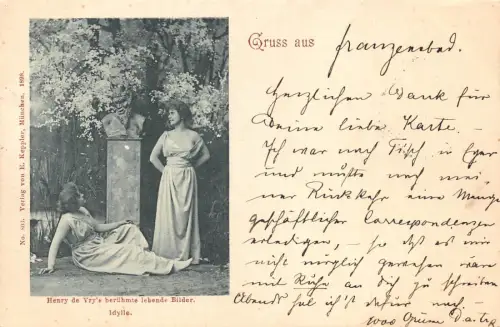 No. 801. Verlag von E. Keppler, München. 1898.
Henry de Vry's berühmte lebende Bilder.
Idylle.
Gruss aus Franzensbad.
Herzlichen Dank für
Deine liebe Karte. –
Ich war nach Tisch in Eger
und mußte nach mei-
ner Rückkehr eine Menge
geschäftlicher Correspondenzen
erledigen, – so daß es mir
nicht möglich gewesen wäre
mit Ruhe an dich zu schreiben
Abends hol ich's dafür nach –